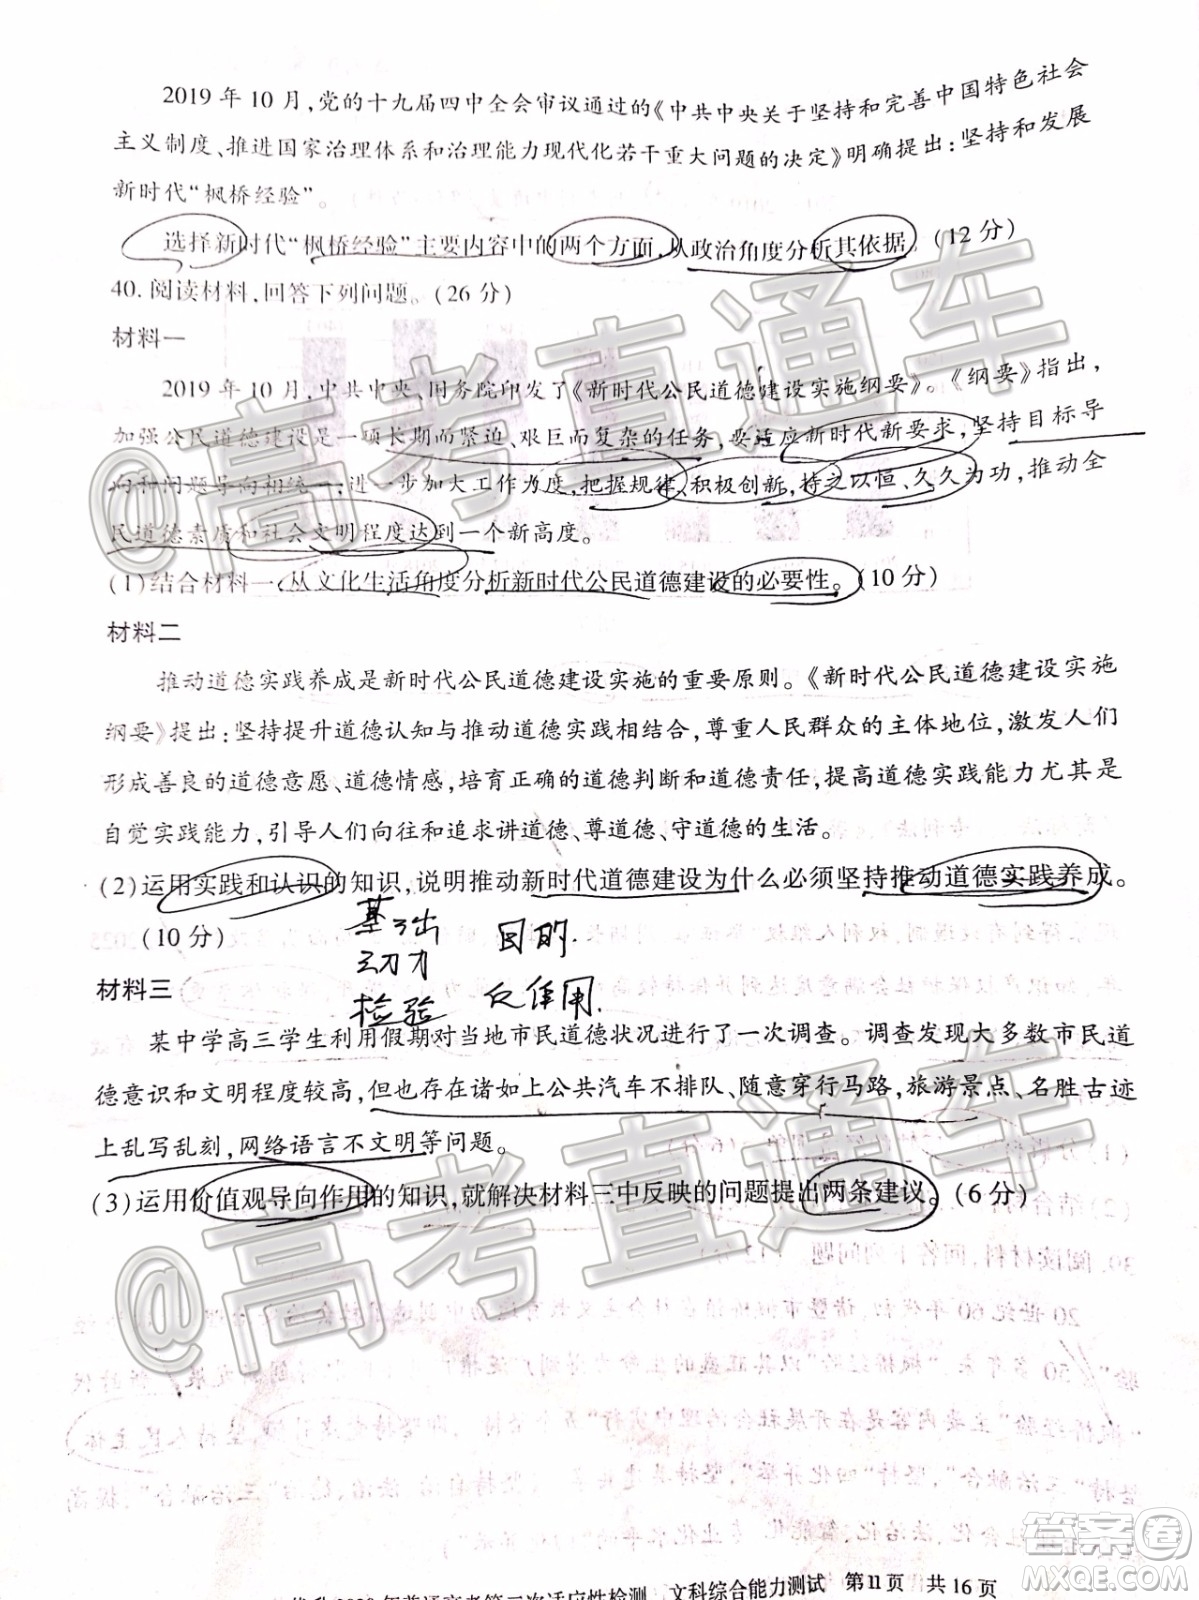 2019 年 10 月,党的十九届四中全会审议通过的《中共中央关于坚持和完善中国特色社会
主义制度、推进国家治理体系和治理能力现代化若干重大问题的决定》明确提出:坚持和发展
新时代“枫桥经验”。
选择新时代“枫桥经验”主要内容中的两个方面,从政治角度分析其依据。(12 分)
40. 阅读材料,回答下列问题。(26 分)
材料一
2019 年 10 月,中共中央、国务院印发了《新时代公民道德建设实施纲要》。《纲要》指出,
加强公民道德建设是一项长期而紧迫、艰巨而复杂的任务,要适应新时代新要求,坚持目标导
向和问题导向相统一,进一步加大工作力度,把握规律、积极创新,持之以恒、久久为功,推动全
民道德素质和社会文明程度达到一个新高度。
(1)结合材料一,从文化生活角度分析新时代公民道德建设的必要性。(10 分)
材料二
推动道德实践养成是新时代公民道德建设实施的重要原则。《新时代公民道德建设实施
纲要》提出:坚持提升道德认知与推动道德实践相结合,尊重人民群众的主体地位,激发人们
形成善良的道德意愿、道德情感,培育正确的道德判断和道德责任,提高道德实践能力尤其是
自觉实践能力,引导人们向往和追求讲道德、尊道德、守道德的生活。
(2)运用实践和认识的知识,说明推动新时代道德建设为什么必须坚持推动道德实践养成。
(10 分)
基础 目的.
动力
检验 反作用.
材料三
某中学高三学生利用假期对当地市民道德状况进行了一次调查。调查发现大多数市民道
德意识和文明程度较高,但也存在诸如上公共汽车不排队、随意穿行马路,旅游景点、名胜古迹
上乱写乱刻,网络语言不文明等问题。
(3)运用价值观导向作用的知识,就解决材料三中反映的问题提出两条建议。(6 分)
文科综合能力测试 第11页 共16页
@高考直通车
@高考直通车
答案圈